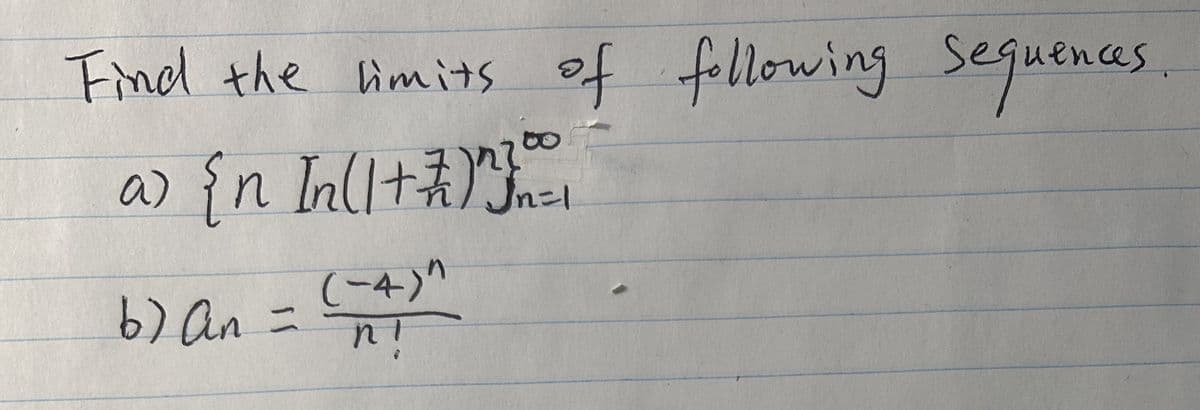 Find the limits of following sequences.
a) {n In(1+7/n)^n}^∞_n=1
b) an = (-4)^n / n!